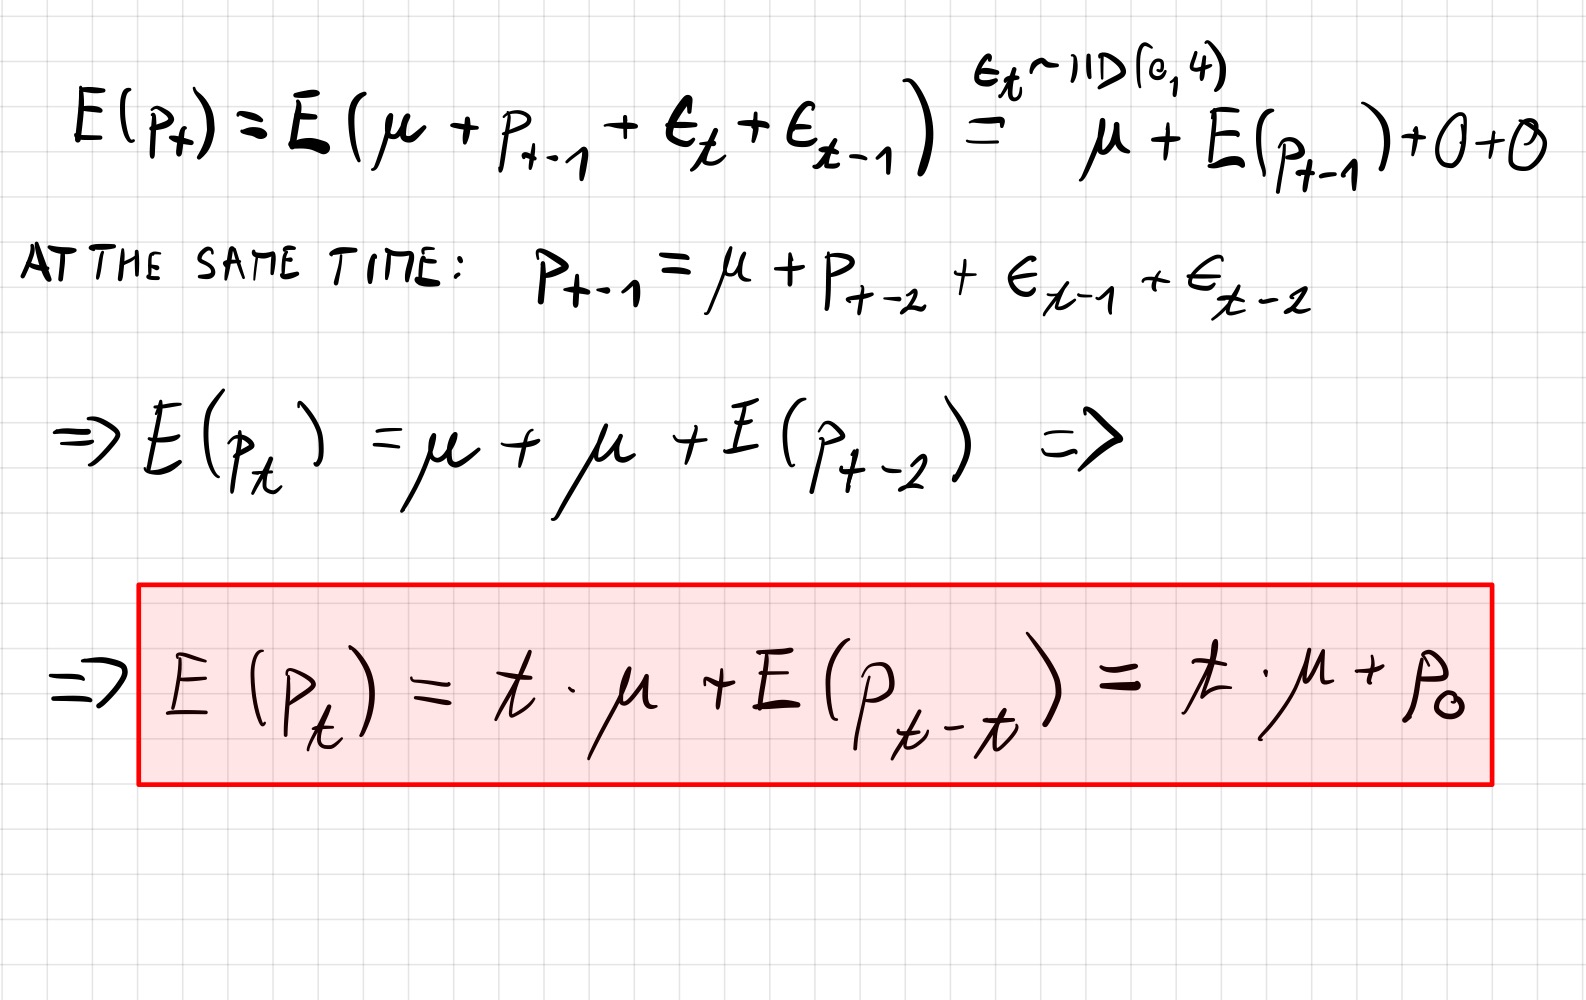 ϵₜ ~ IID(0, 4)
E(pₜ) = E(μ + pₜ₋₁ + ϵₜ + ϵₜ₋₁) = μ + E(pₜ₋₁) + 0 + 0
AT THE SAME TIME: pₜ₋₁ = μ + pₜ₋₂ + ϵₜ₋₁ + ϵₜ₋₂
⇒ E(pₜ) = μ + μ + E(pₜ₋₂) ⇒
⇒ E(pₜ) = t · μ + E(pₜ₋ₜ) = t · μ + p₀